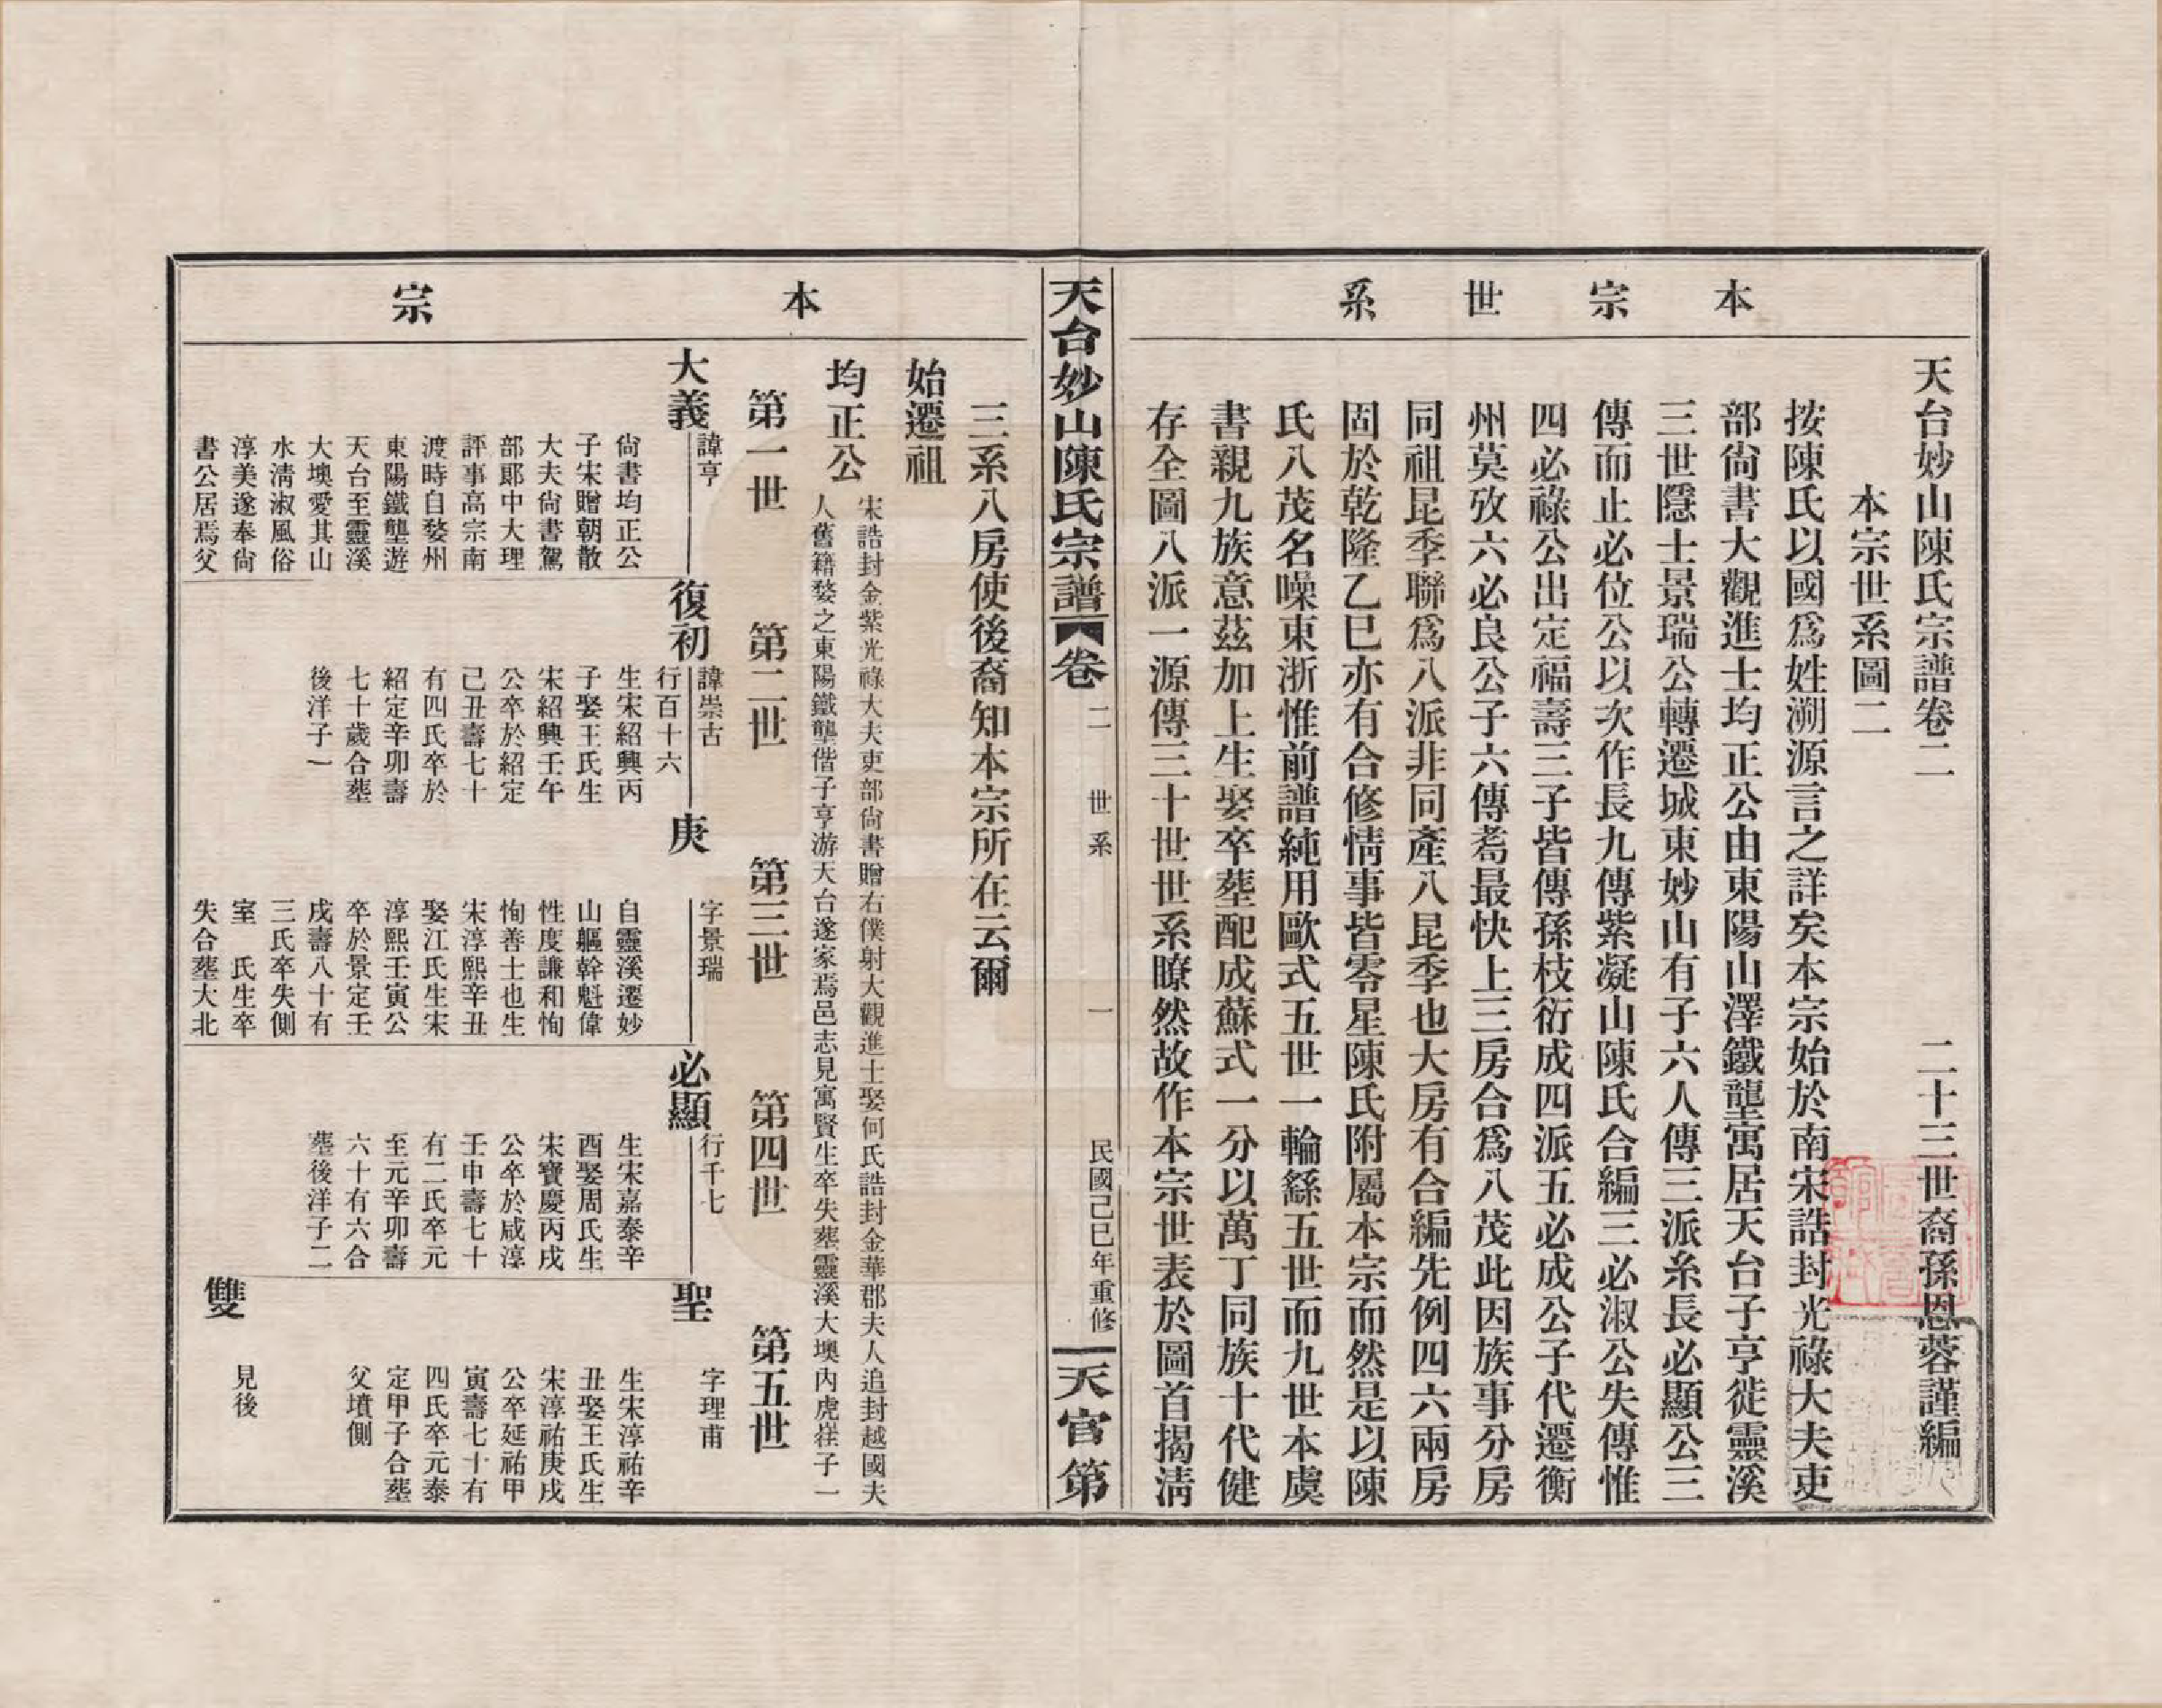 本宗世系
天台妙山陳氏宗譜卷二 二十三世裔孫恩蓉謹編
本宗世系圖二
按陳氏以國爲姓溯源言之詳矣本宗始於南宋誥封光祿大夫吏
部尙書大觀進士均正公由東陽山澤鐵壟寓居天台子亨徙靈溪
三世隱士景瑞公轉遷城東妙山有子六人傳三派糸長必顯公三
傳而止必位公以次作長九傳紫凝山陳氏合編三必淑公失傳惟
四必祿公出定福壽三子皆傳孫枝衍成四派五必成公子代遷衡
州莫攷六必良公子六傳蒍最快上三房合爲八茂此因族事分房
同祖昆季聯爲八派非同產八昆季也大房有合編先例四六兩房
固於乾隆乙巳亦有合修情事皆零星陳氏附屬本宗而然是以陳
氏八茂名噪東浙惟前譜純用歐式五世一輪繇五世而九世本虞
書親九族意茲加上生娶卒塟配成蘇式一分以萬丁同族十代健
存全圖八派一源傳三十世世系瞭然故作本宗世表於圖首揭淸
天台妙山陳氏宗譜 卷二 世系 一 民國己巳年重修 天官第
本宗
三系八房使後裔知本宗所在云爾
始遷祖
均正公
宋誥封金紫光祿大夫吏部尙書贈右僕射大觀進士娶何氏誥封金華郡夫人追封越國夫
人舊籍婺之東陽鐵壟偕子亨游天台遂家焉邑志見寓賢生卒失塟靈溪大墺內虎徃子一
第一世 第二世 第三世 第四世 第五世
大義
諱亨
尙書均正公
子宋贈朝散
大夫尙書駕
部郎中大理
評事高宗南
渡時自婺州
東陽鐵壟遊
天台至靈溪
大墺愛其山
水淸淑風俗
淳美遂奉尙
書公居焉父
復初
諱崇古
行百十六
生宋紹興丙
子娶王氏生
宋紹興壬午
公卒於紹定
己丑壽七十
有四氏卒於
紹定辛卯壽
七十歲合塟
後洋子一
庚
字景瑞
自靈溪遷妙
山軀幹魁偉
性度謙和恂
恂善士也生
宋淳熙辛丑
娶江氏生宋
淳熙壬寅公
卒於景定壬
戌壽八十有
三氏卒失側
室 氏生卒
失合塟大北
必顯
行千七
生宋嘉泰辛
酉娶周氏生
宋寶慶丙戌
公卒於咸淳
壬申壽七十
有二氏卒元
至元辛卯壽
六十有六合
塟後洋子二
聖
字理甫
生宋淳祐辛
丑娶王氏生
宋淳祐庚戌
公卒延祐甲
寅壽七十有
四氏卒元泰
定甲子合塟
父墳側
雙
見後